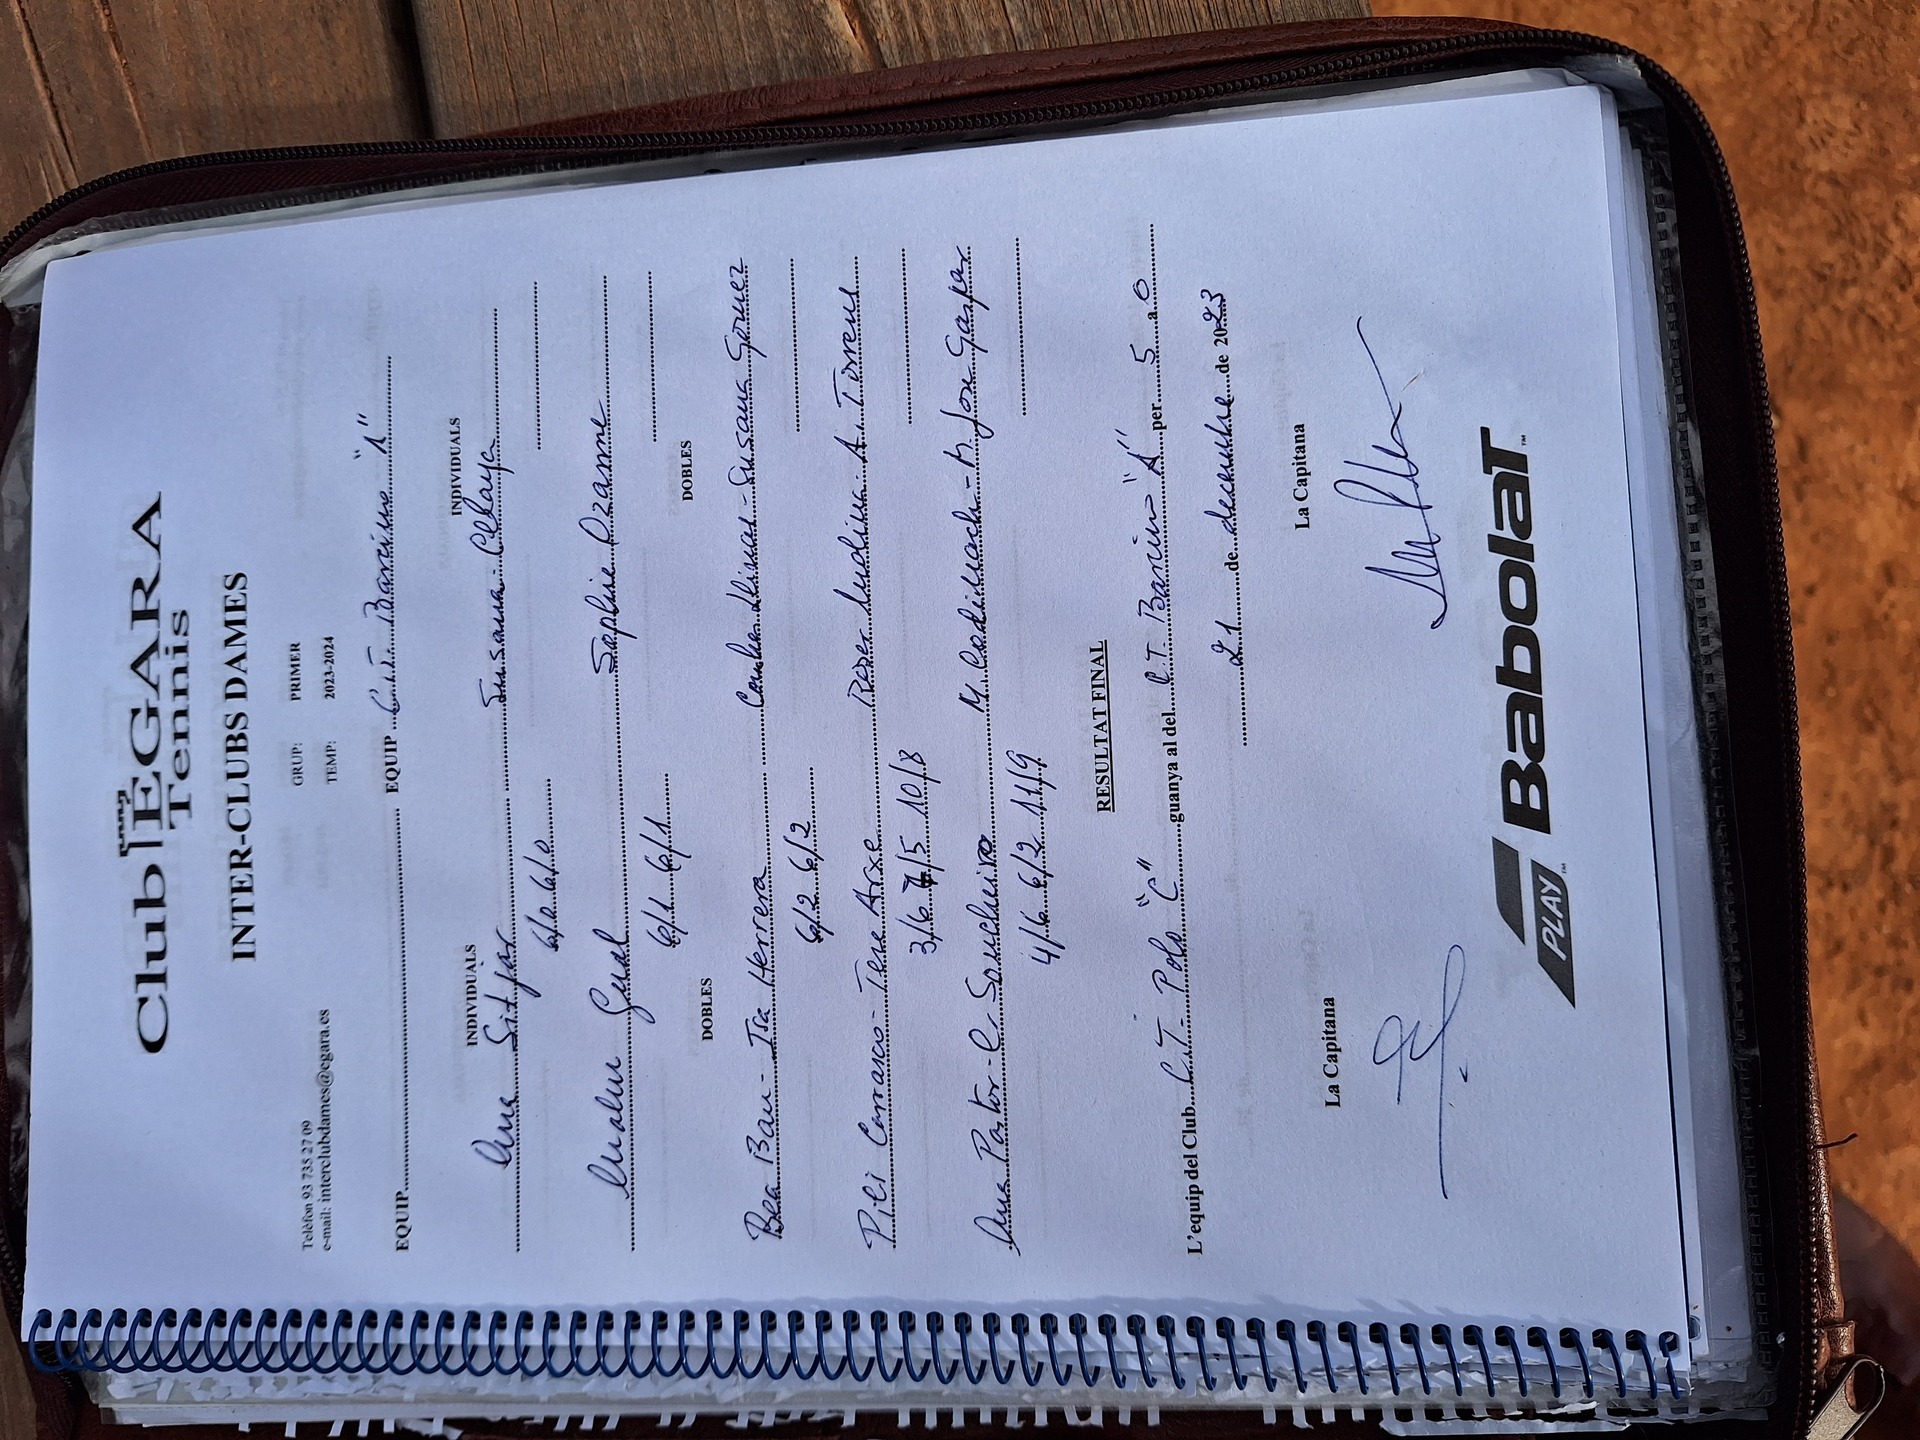 Club EGARA
Tennis
INTER-CLUBS DAMES
Telèfon 93 735 27 09 GRUP: PRIMER
e-mail: interclubdames@egara.es TEMP: 2023-2024
EQUIP EQUIP C.T. Barcino "A"
INDIVIDUALS INDIVIDUALS
Anna Sitjar Susana Celaya
6/0 6/0
Malu Gual Sophie Ozanne
6/1 6/1
DOBLES DOBLES
Bea Bau - Isa Herrera Susana Gomez
6/2 6/2
Pili Carrasco - Tere Arxe Roser Molina A. Torrens
3/6 7/5 10/8
Ana Pastor - M. Codinach - M. Jose Gaspar
4/6 6/2 11/9
RESULTAT FINAL
L'equip del Club C.T. Polo "C" guanya al del C.T. Barcino "A" per 5 a 0
21 de decembre de 2023
La Capitana La Capitana
PLAY Babolat